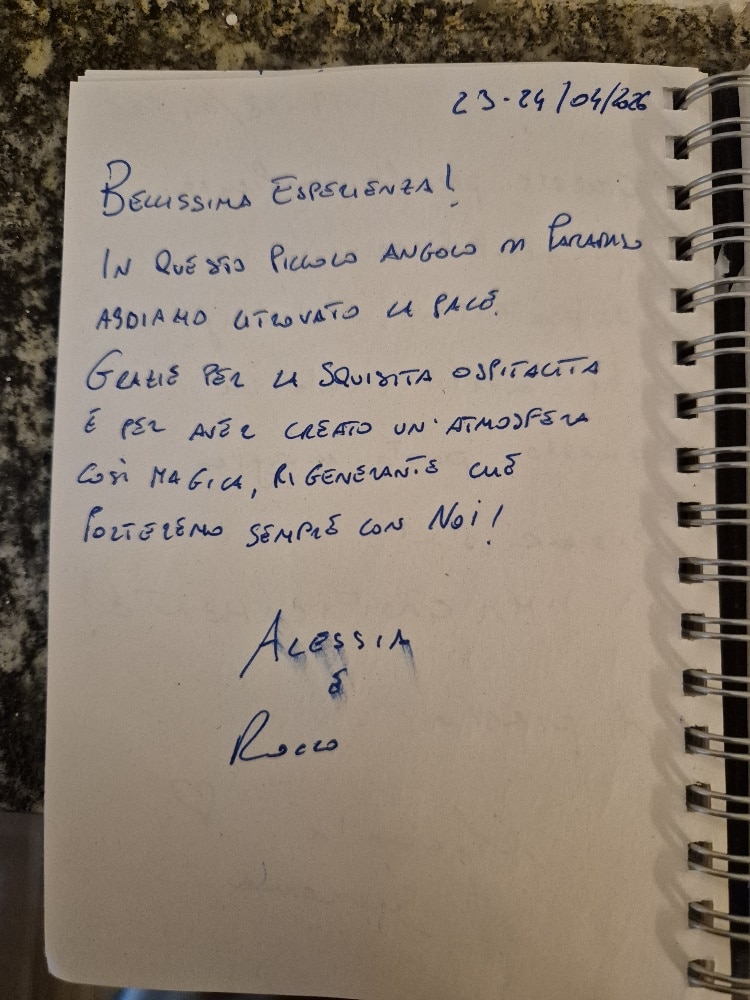 23-24/04/2026
BELLISSIMA ESPERIENZA!
IN QUESTO PICCOLO ANGOLO DI PARADISO
ABBIAMO RITROVATO LA PACE.
GRAZIE PER LA SQUISITA OSPITALITA
E PER AVER CREATO UN'ATMOSFERA
COSÌ MAGICA, RIGENERANTE CHE
PORTEREMO SEMPRE CON NOI!
ALESSIA
&
ROCCO